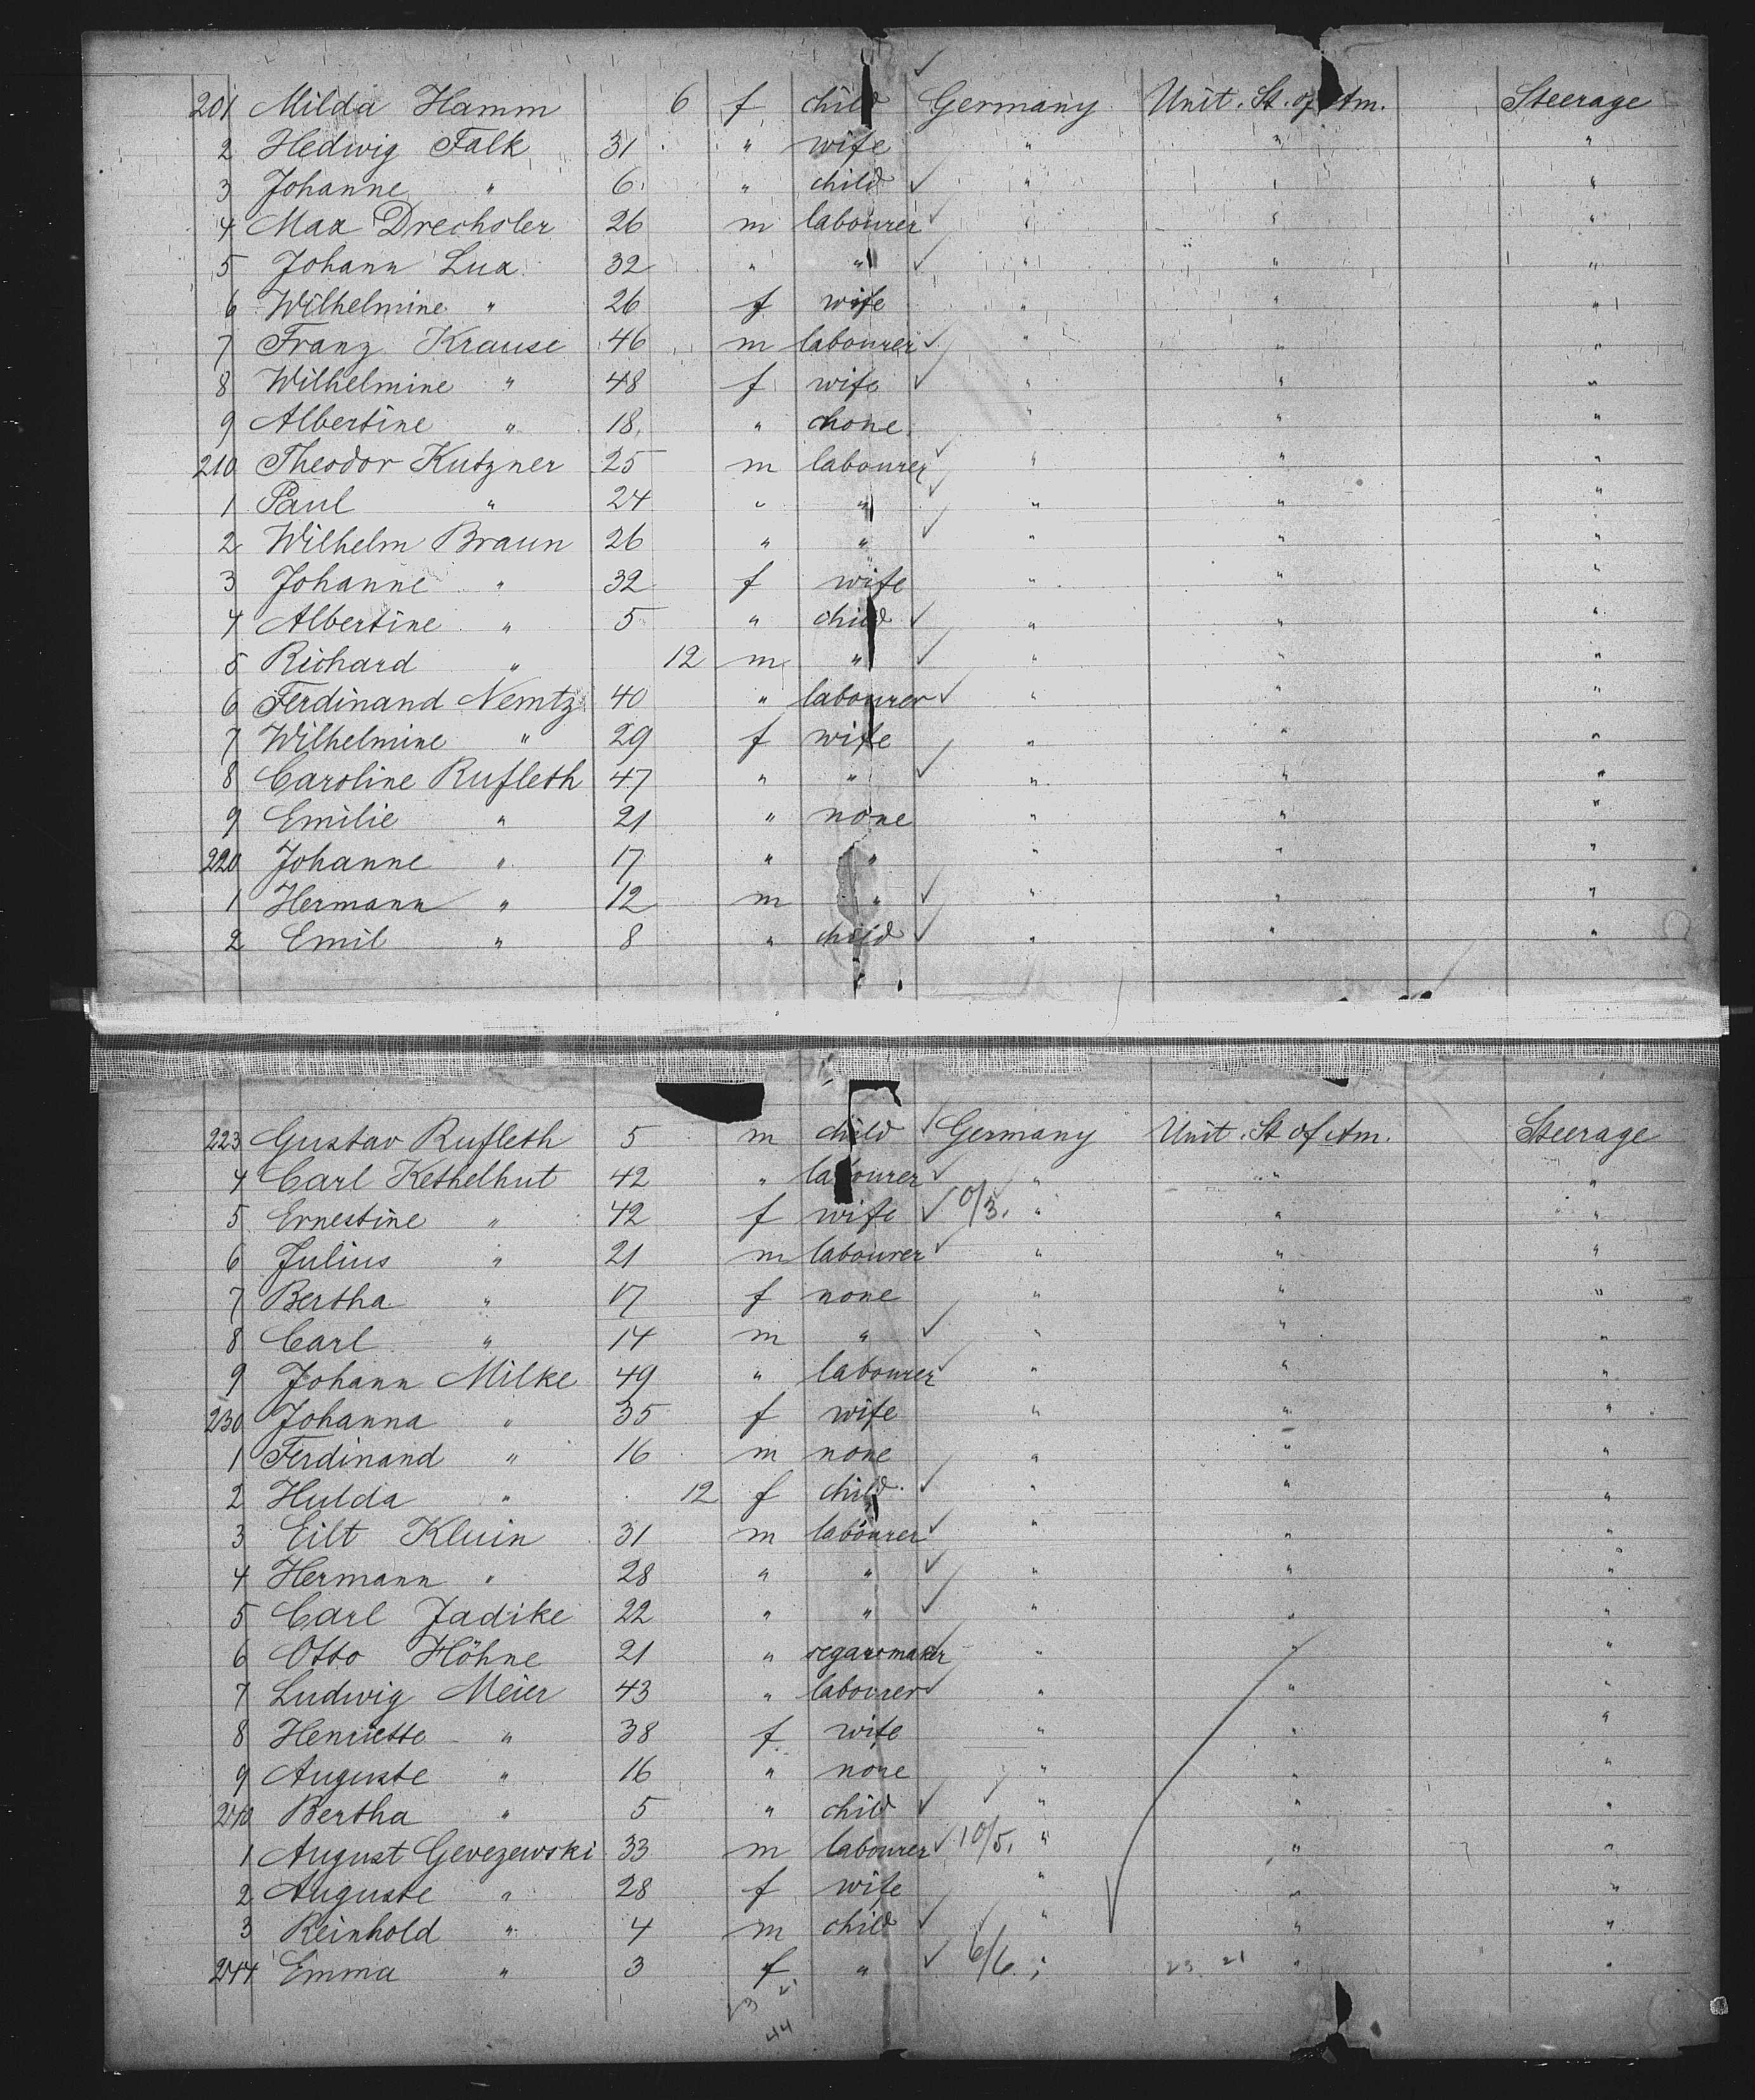 201 Milda Hamm 6 f child Germany Unit. St. of Am. Steerage
2 Hedwig Falk 31 " wife " " "
3 Johanne " 6 " child " " "
4 Max Drechsler 26 m labourer " " "
5 Johann Lux 32 " " " " "
6 Wilhelmine " 26 f wife " " "
7 Franz Krause 46 m labourer " " "
8 Wilhelmine " 48 f wife " " "
9 Albertine " 18 " none " " "
210 Theodor Kutzner 25 m labourer " " "
1 Paul " 24 " " " " "
2 Wilhelm Braun 26 " " " " "
3 Johanne " 32 f wife " " "
4 Albertine " 5 " child " " "
5 Richard " 12 m " " " "
6 Ferdinand Nemtz 40 " labourer " " "
7 Wilhelmine " 29 f wife " " "
8 Caroline Rufleth 47 " " " " "
9 Emilie " 21 " none " " "
220 Johanne " 17 " " " " "
1 Hermann " 12 m " " " "
2 Emil " 8 " child " " "
223 Gustav Rufleth 5 m child Germany Unit. St of Am. Steerage
4 Carl Kethelhut 42 " labourer " " "
5 Ernestine " 42 f wife 0/3. " " "
6 Julius " 21 m labourer " " "
7 Bertha " 17 f none " " "
8 Carl " 14 m " " " "
9 Johann Milke 49 " labourer " " "
230 Johanna " 35 f wife " " "
1 Ferdinand " 16 m none " " "
2 Hulda " 12 f child " " "
3 Eilt Kluin 31 m labourer " " "
4 Hermann " 28 " " " " "
5 Carl Jadike 22 " " " " "
6 Otto Höhne 21 " segarsmaker " " "
7 Ludwig Meier 43 " labourer " " "
8 Henriette " 38 f wife " " "
9 Auguste " 16 " none " " "
240 Bertha " 5 " child " " "
1 August Gevezewski 33 m labourer 10/5. " " "
2 Auguste " 28 f wife " " "
3 Reinhold " 4 m child " " "
244 Emma " 3 f " 6/6. " 23. 21 " "
44